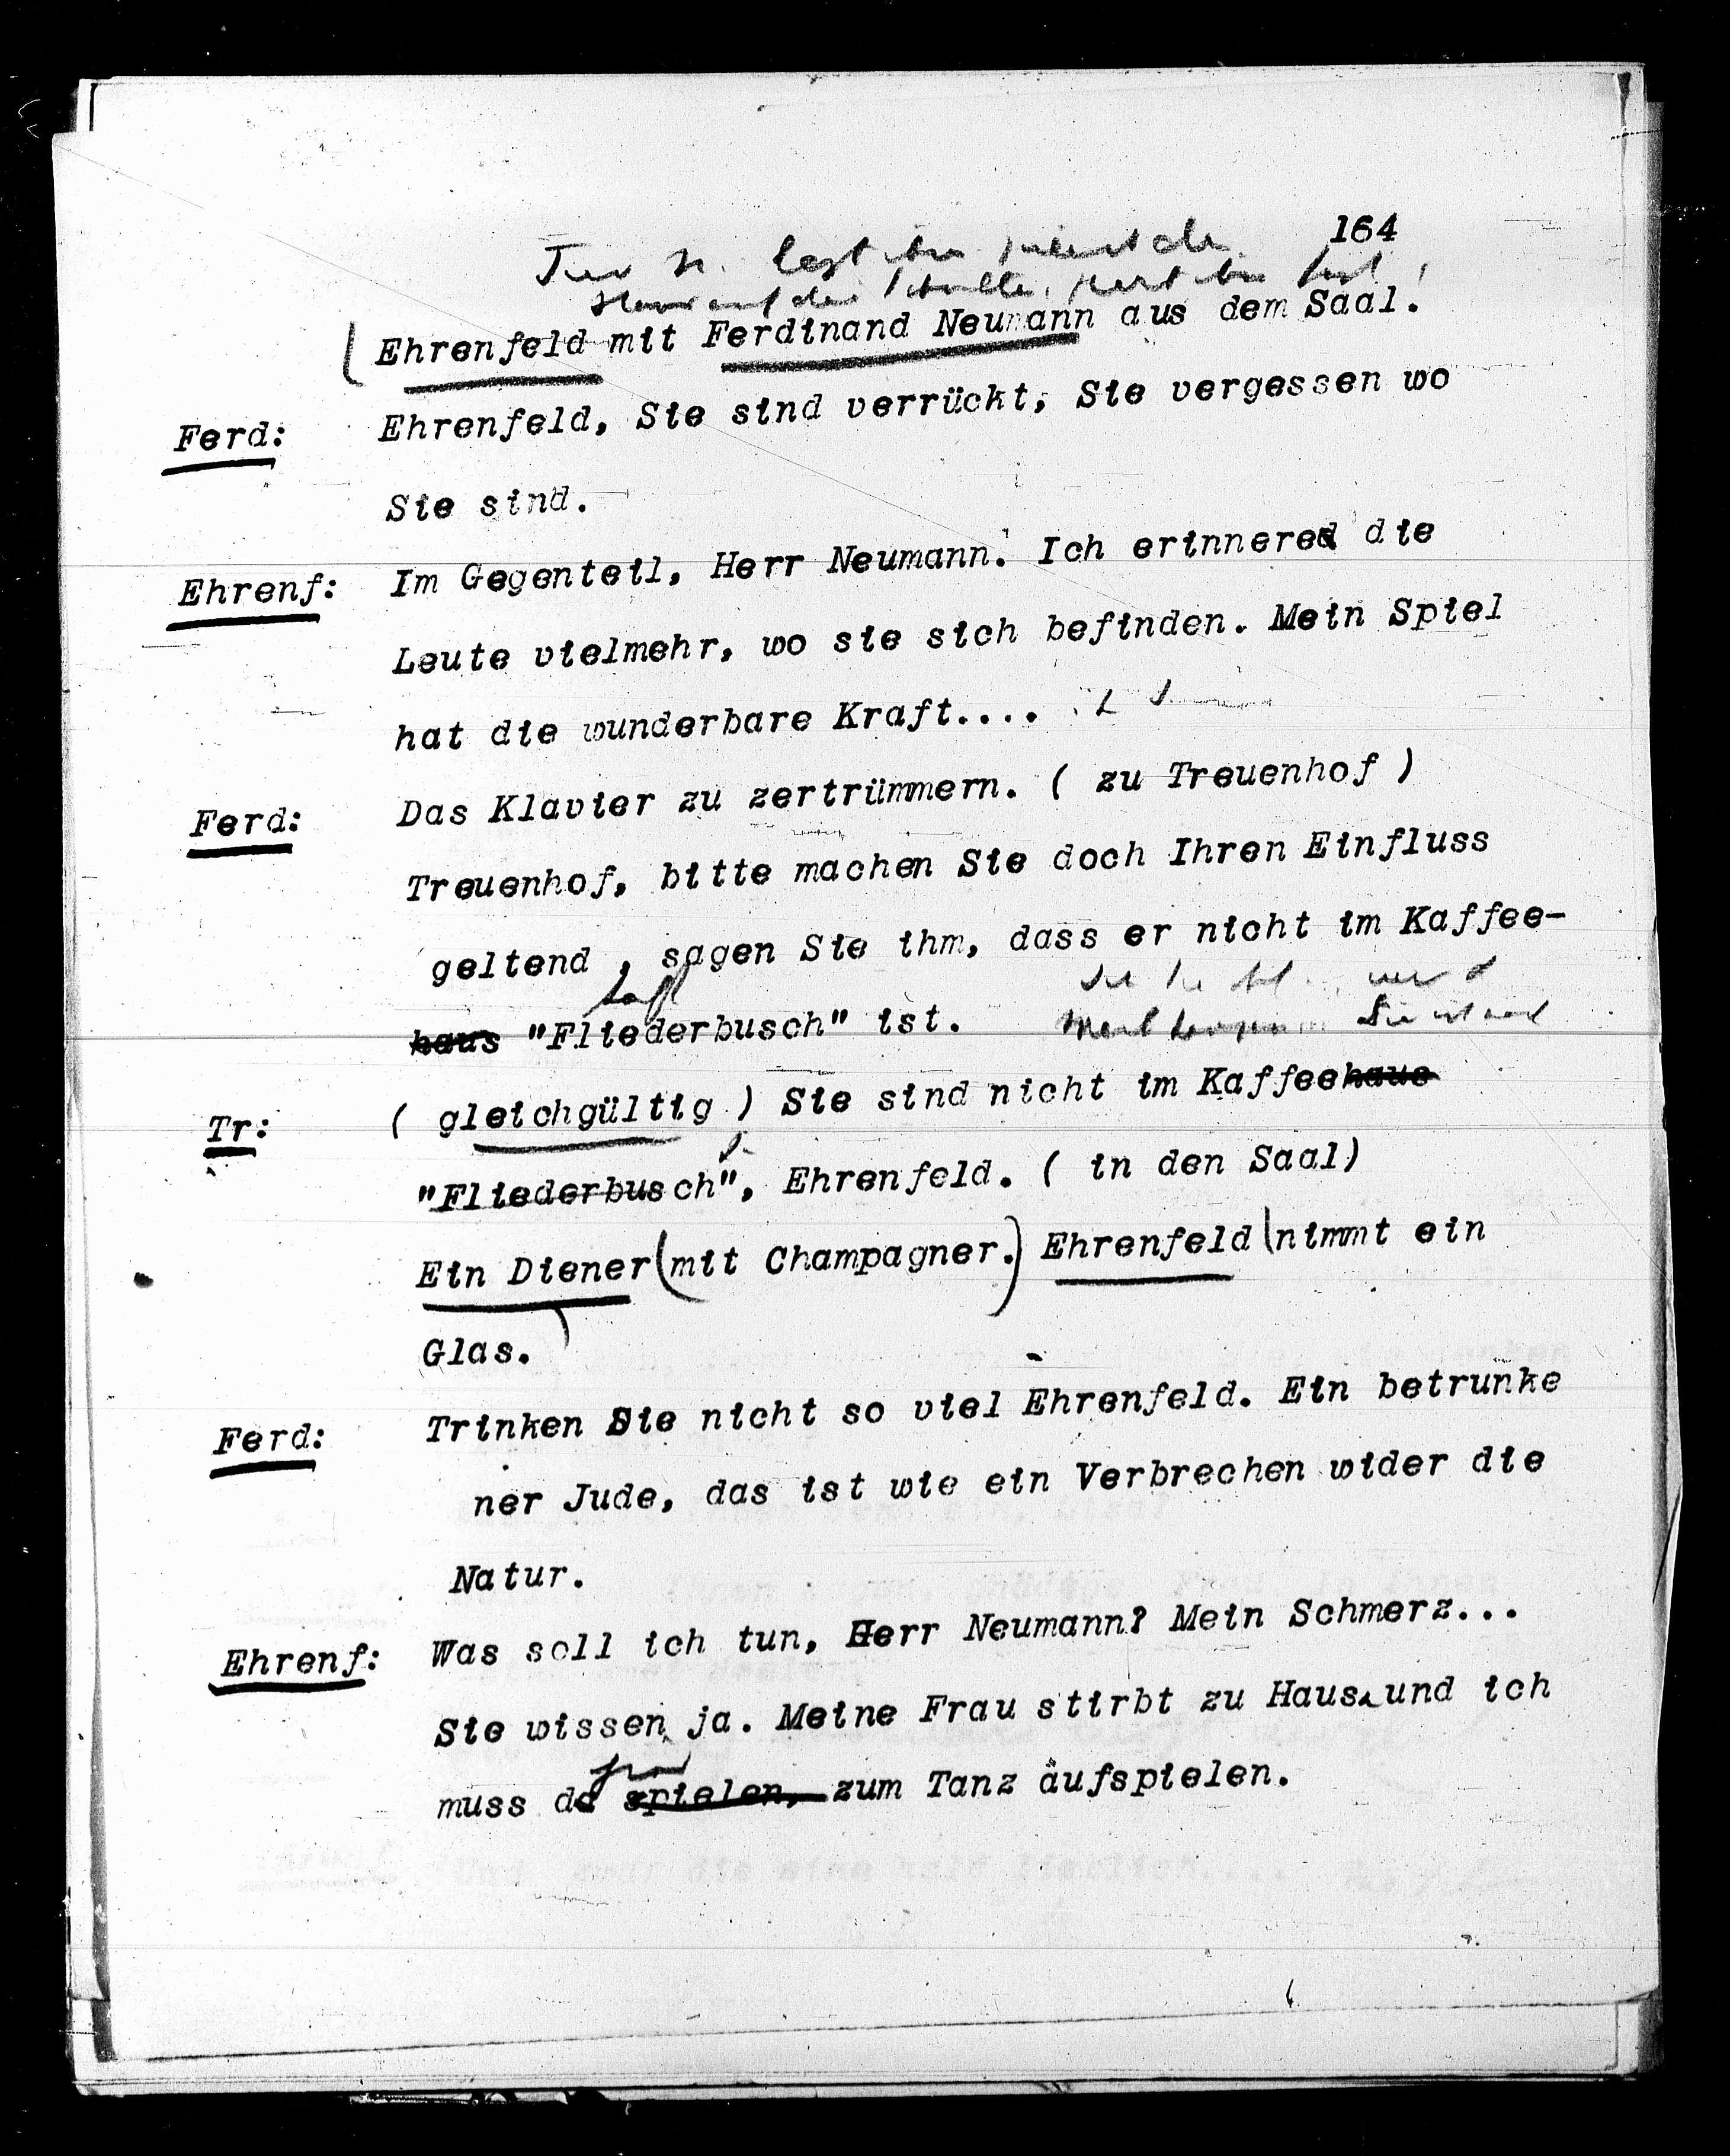 164
legt
Ehrenfeld mit Ferdinand Neumann aus dem Saal.
Ferd: Ehrenfeld, Sie sind verrückt, Sie vergessen wo
Sie sind.
Ehrenf: Im Gegenteil, Herr Neumann. Ich erinnere die
Leute vielmehr, wo sie sich befinden. Mein Spiel
hat die wunderbare Kraft....
Ferd: Das Klavier zu zertrümmern. ( zu Treuenhof )
Treuenhof, bitte machen Sie doch Ihren Einfluss
geltend , sagen Sie ihm, dass er nicht im Kaffee-
haus "Fliederbusch" ist.
Tr: ( gleichgültig ) Sie sind nicht im Kaffeehaus
"Fliederbusch", Ehrenfeld. ( in den Saal)
Ein Diener (mit Champagner.) Ehrenfeld nimmt ein
Glas.
Ferd: Trinken Sie nicht so viel Ehrenfeld. Ein betrunke
ner Jude, das ist wie ein Verbrechen wider die
Natur.
Ehrenf: Was soll ich tun, Herr Neumann? Mein Schmerz...
Sie wissen ja. Meine Frau stirbt zu Haus und ich
muss da spielen, zum Tanz aufspielen.